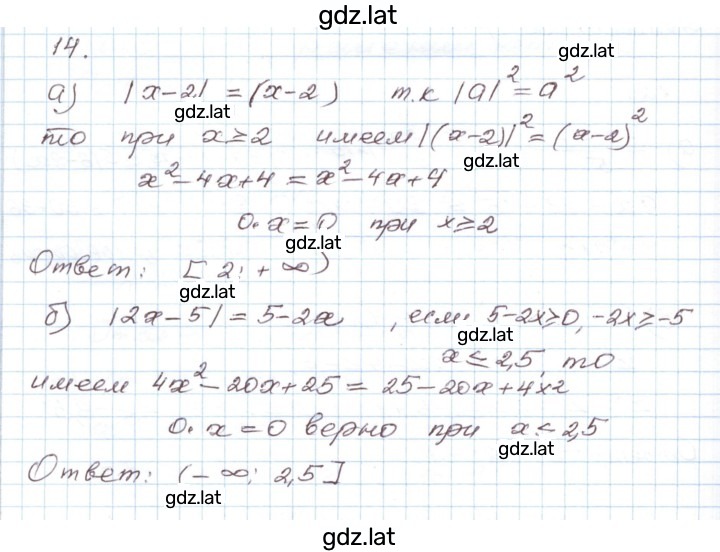 gdz.lat
14.
gdz.lat
а) |x-2| = (x-2) т.к |a|²=a²
gdz.lat
то при x≥2 имеем |(x-2)|²=(x-2)²
gdz.lat
x²-4x+4 = x²-4x+4
0·x=0 при x≥2
gdz.lat
Ответ: [2; +∞)
gdz.lat
б) |2x-5|=5-2x, если 5-2x≥0, -2x≥-5
gdz.lat
x≤2,5, то
имеем 4x²-20x+25 = 25-20x+4x²
0·x=0 верно при x≤2,5
gdz.lat
Ответ: (-∞; 2,5]
gdz.lat
gdz.lat